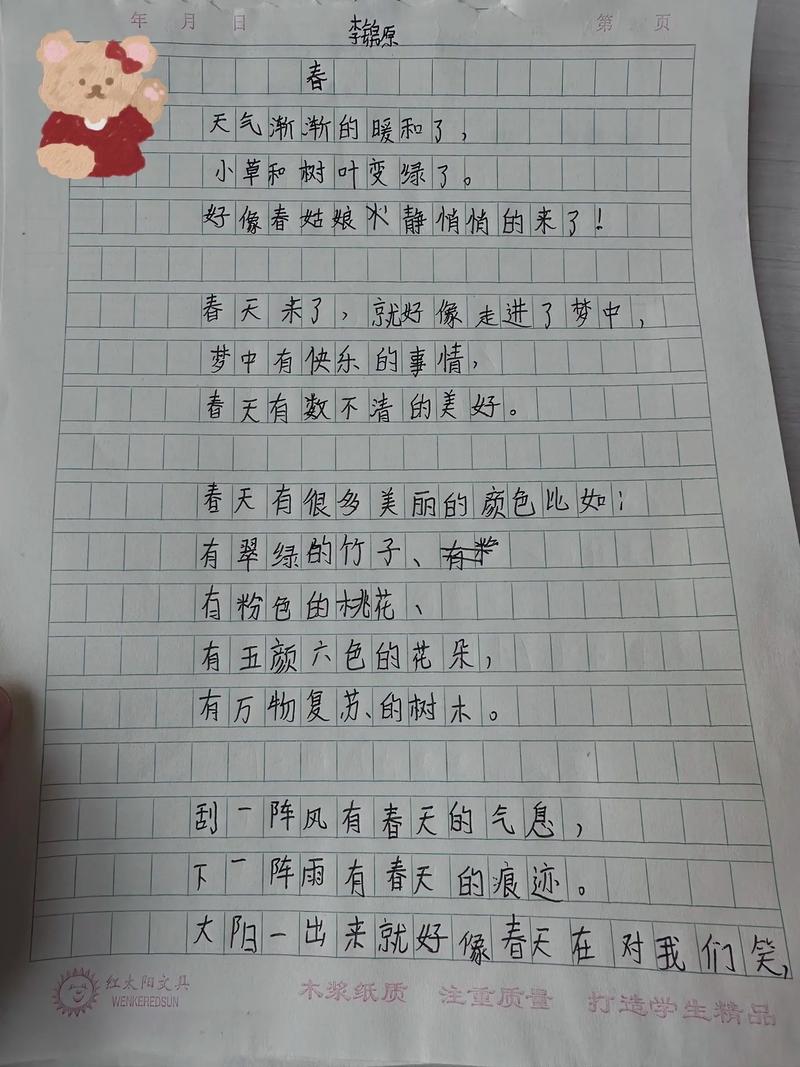 年 月 日 第 页
李锦原
春
天气渐渐的暖和了，
小草和树叶变绿了。
好像春姑娘静悄悄的来了！
春天来了，就好像走进了梦中，
梦中有快乐的事情，
春天有数不清的美好。
春天有很多美丽的颜色比如：
有翠绿的竹子、
有粉色的桃花、
有五颜六色的花朵，
有万物复苏、的树木。
刮一阵风有春天的气息，
下一阵雨有春天的痕迹。
大阳一出来就好像春天在对我们笑，
红太阳文具
WENKEREDSUN
木浆纸质 注重质量 打造学生精品